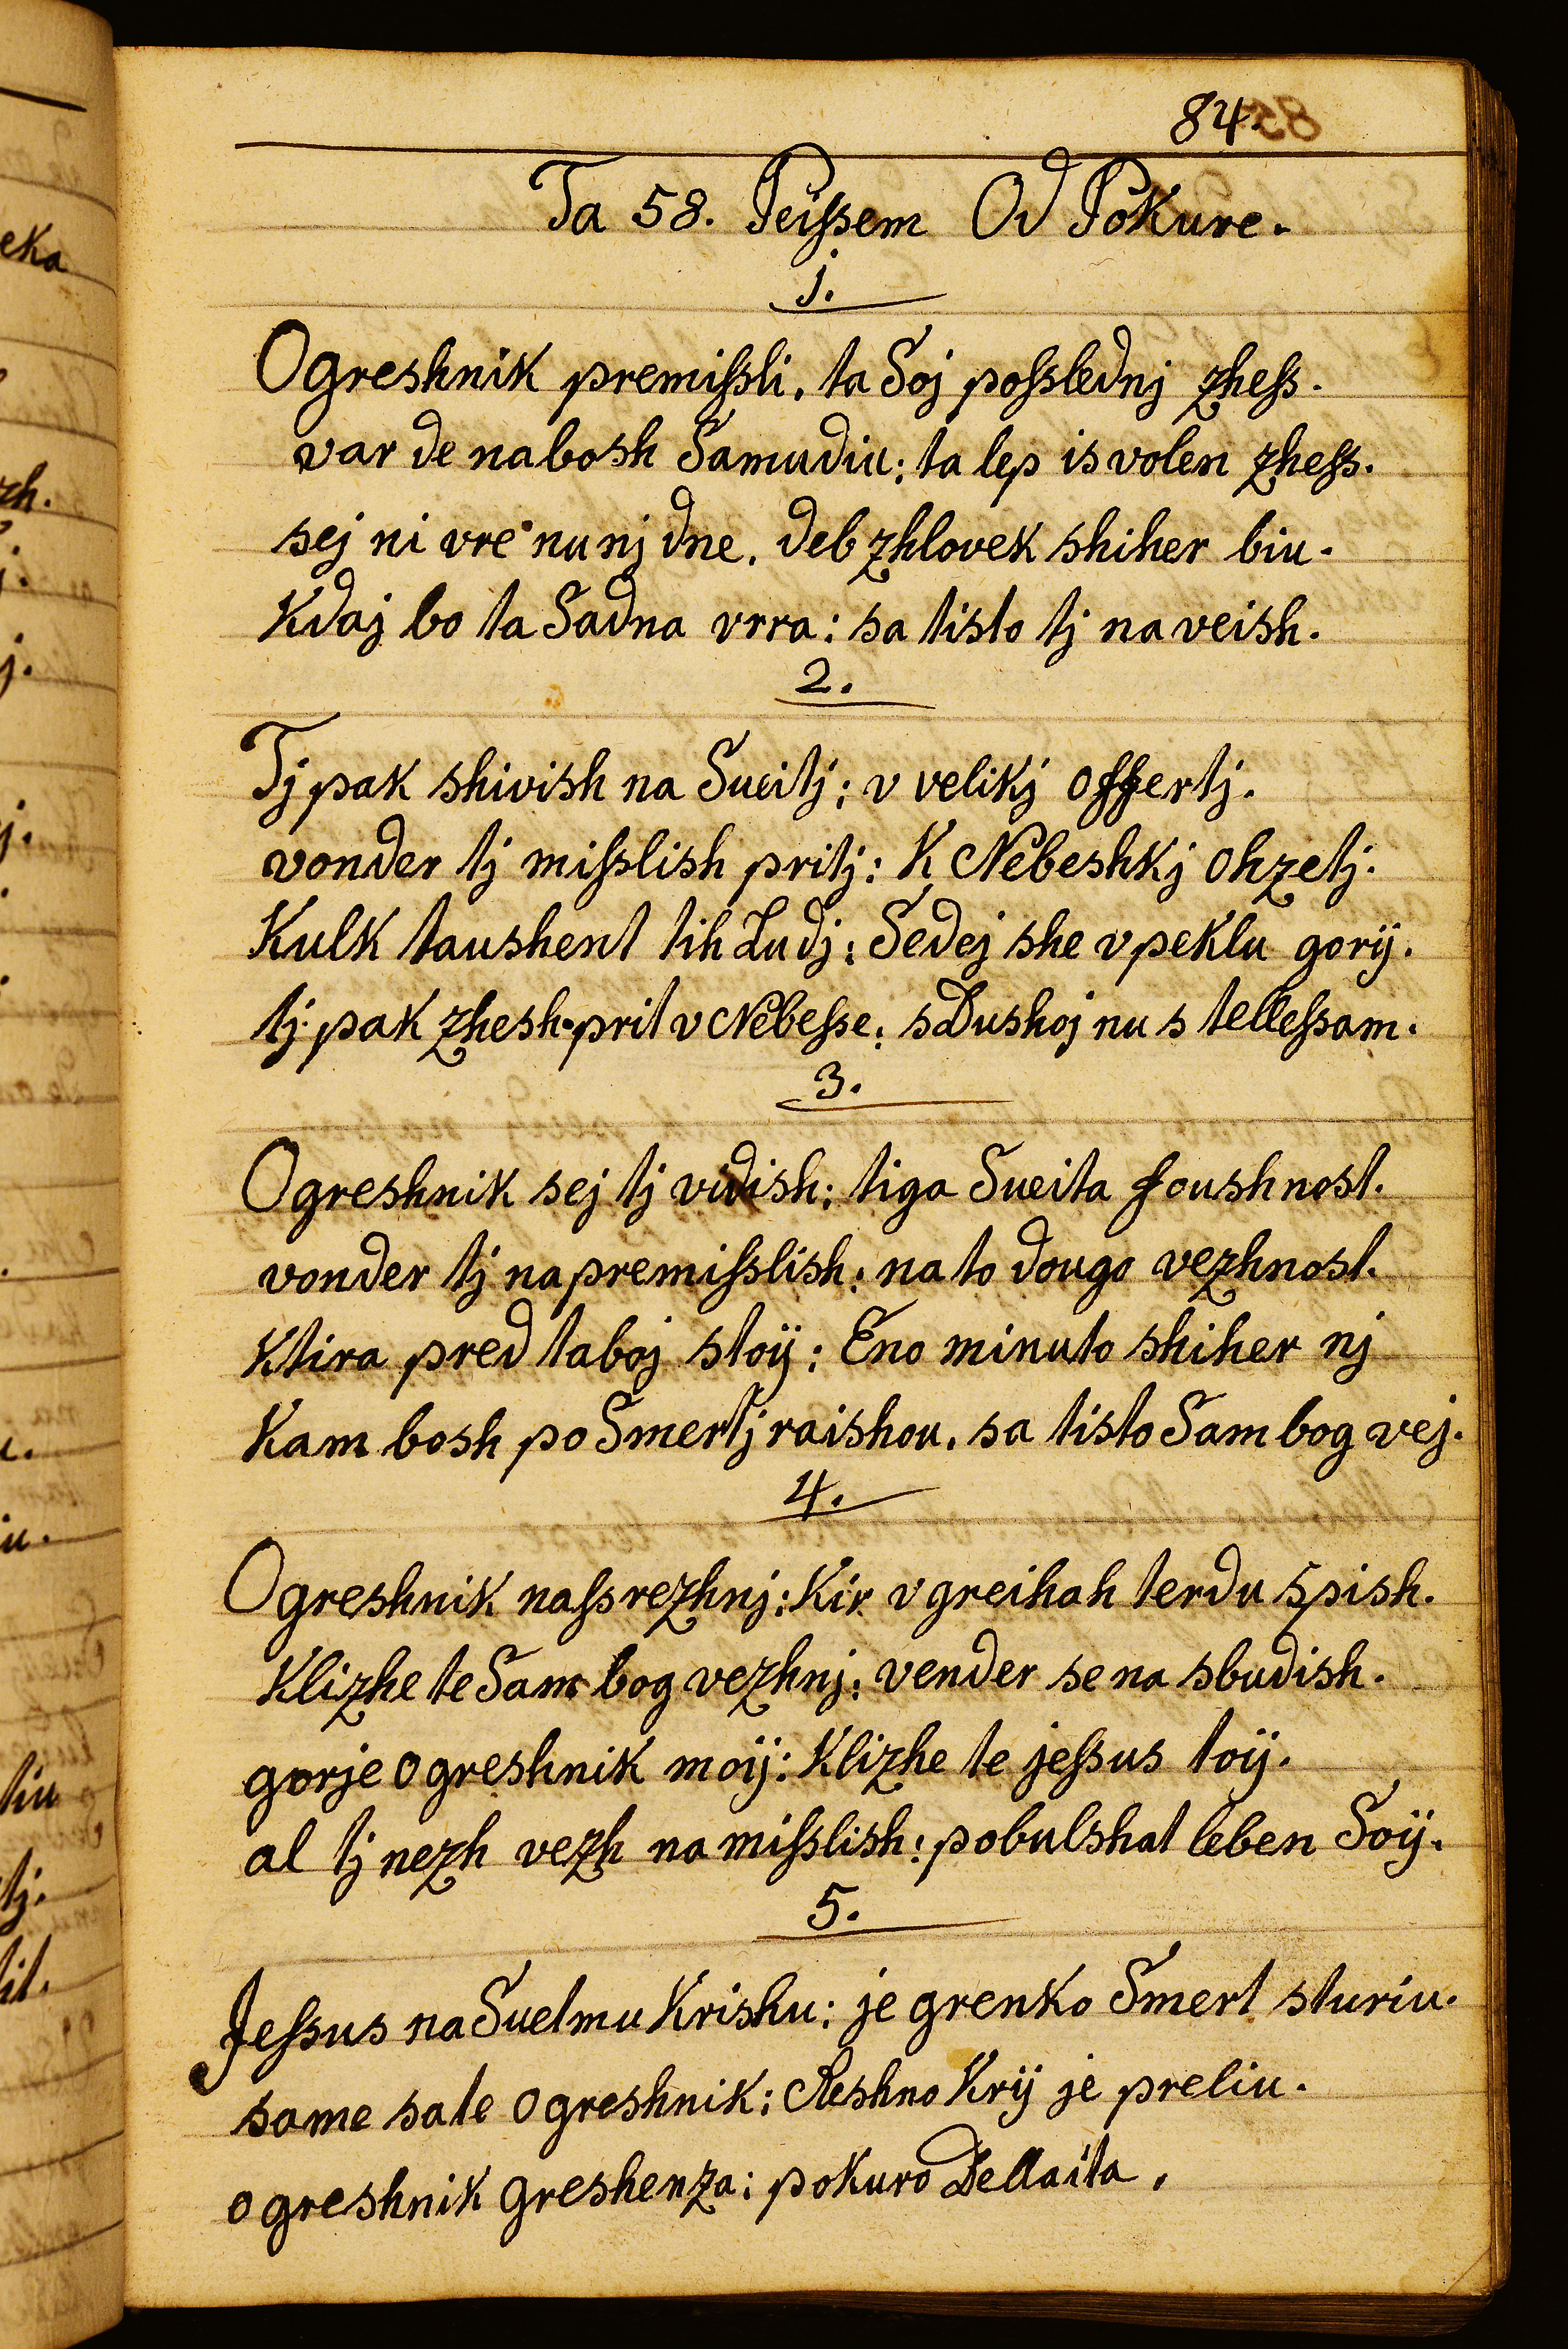 84.
Ta 58. Peißem Od Pokure.
1.
Ogreshnik premißli, ta Soj poßlednj zheß.
var de nabosh Samudiu: ta lep isvolen zheß.
sej ni vre nu nj dne, deb zhlovek shiher biu.
Kdaj bo ta Sadna vrra: sa tisto tj na veish.
2.
Tj pak shivish na Sueitj: v velikj offertj.
vonder tj mißlish pritj: K Nebeshkj ohzetj.
Kulk taushent tih Ludj: Sedej she v peklu gorÿ.
tj pak zhesh prit v Nebeße: s Dushoj nu s telleßam.
3.
Ogreshnik sej tj vidish: tiga Sueita foushnost.
vonder tj na premißlish: na to dougo vezhnost.
Ktira pred taboj stoÿ: Eno minuto shiher nj
Kam bosh po Smertj raishou, sa tisto Sam bog vej.
4.
Ogreshnik naßrezhnj: Kir v greihah terdu spish.
Klizhe te Sam bog vezhnj: vender se na sbudish.
gorje o greshnik moÿ: Klizhe te jeßus toÿ.
al tj nezh vezh na mißlish: pobulshat leben Soÿ.
5.
Jeßus na Suetmu Krishu: je grenko Smert sturiu.
same sate o greshnik: Reshno Krÿ je preliu.
o greshnik greshenza: pokuro Dellaita,